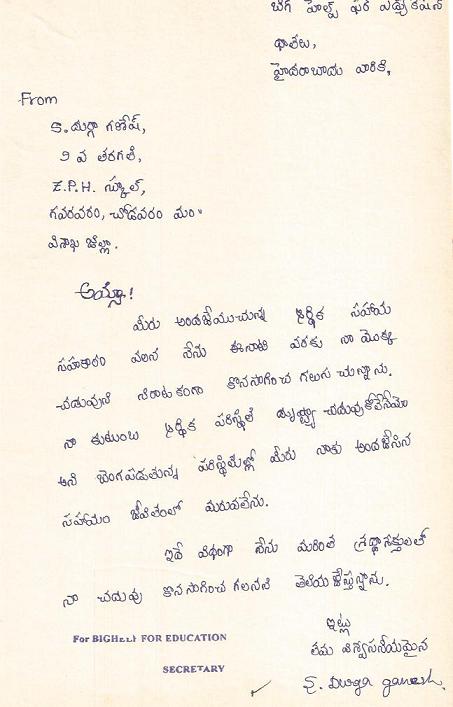 బిగ్ హెల్ప్ ఫర్ ఎడ్యుకేషన్
దాతలు,
హైదరాబాదు వారికి,
From
S. దుర్గా గణేష్,
9 వ తరగతి,
Z.P.H. స్కూల్,
గవరవరం, చోడవరం మం"
విశాఖ జిల్లా.
అయ్యా!
మీరు అందజేయుచున్న ఆర్థిక సహాయ
సహకారం వలన నేను ఈనాటి వరకు నా యొక్క
చదువుని నిరాటకంగా కొనసాగించ గలుగు చున్నాను.
నా కుటుంబ ఆర్థిక పరిస్థితి దృష్ట్యా చదువుకోలేనేమో
అని బెంగపడుతున్న పరిస్థితుల్లో మీరు నాకు అందజేసిన
సహాయం జీవితంలో మరువలేను.
ఇదే విధంగా నేను మరింత శ్రద్ధాసక్తులతో
నా చదువు కొనసాగించ గలనని తెలియజేస్తున్నాను.
ఇట్లు
తమ విశ్వసనీయమైన
For BIGHELP FOR EDUCATION
SECRETARY
S. Durga ganesh.